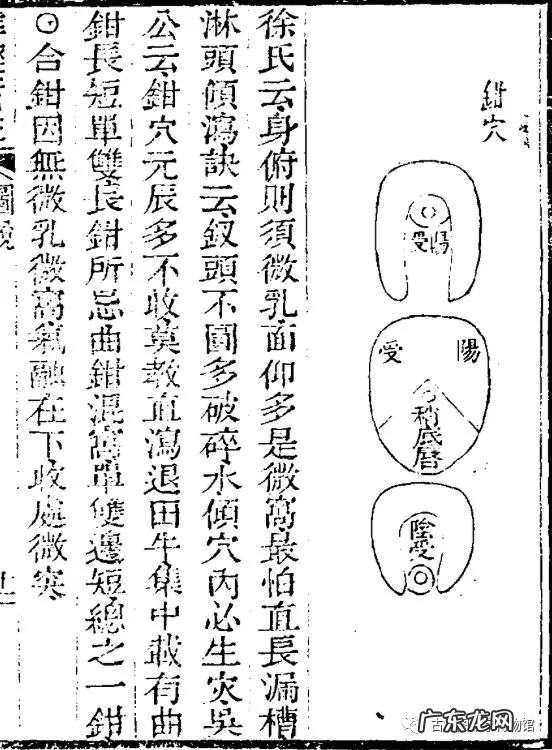 鉗穴
陽受
陽受
稍底唇
陰受
徐氏云身俯則須微乳面仰多是微窩最怕直長漏槽
淋頭傾瀉訣云釵頭不圓多破碎水傾穴內必生灾吳
公云鉗穴元辰多不收莫教直瀉退田牛集中載有曲
鉗長短單雙長鉗所忌曲鉗混窩單雙邊短總之一鉗
合鉗因無微乳微窩氣融在下收處微突
圖說
广东龙网